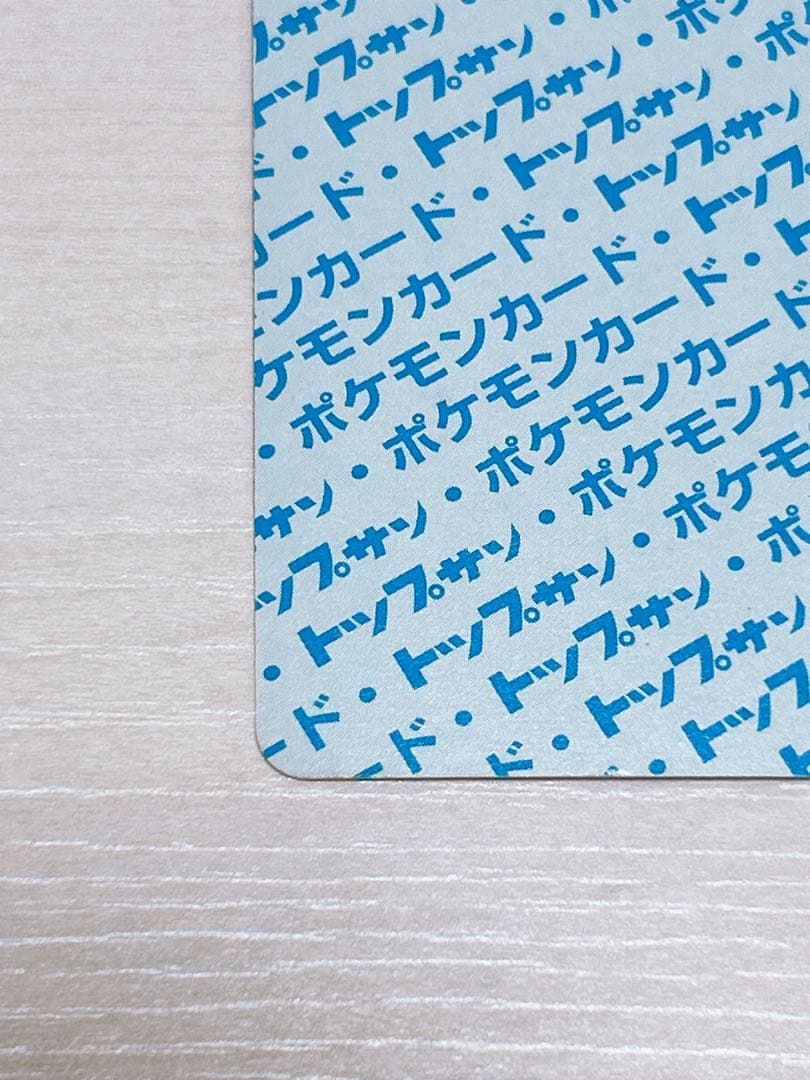 プサン
トップサン
ド・トップサン・ポ
ード・トップサン・ポ
ンカード・トップサン・ポ
ケモンカード・トップサン
・ポケモンカード・トップ
サン・ポケモンカード・ト
ップサン・ポケモンカード
・トップサン・ポケモンカ
ード・トップサン・ポケモ
ド・トップサン・ポ
ド・トップサン
・トップ